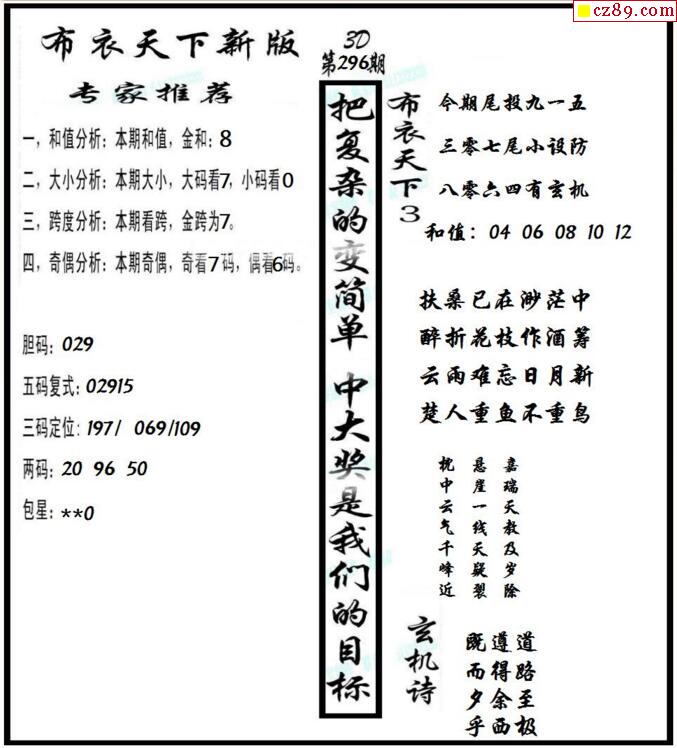 cz89.com
布衣天下新版
专家推荐
一，和值分析：本期和值，金和：8
二，大小分析：本期大小，大码看7，小码看0
三，跨度分析：本期看跨，金跨为7。
四，奇偶分析：本期奇偶，奇看7码，偶看6码。
胆码：029
五码复式：02915
三码定位：197/ 069/109
两码：20 96 50
包星：**0
3D
第296期
把复杂的变简单 中大奖是我们的目标
布衣天下3
今期尾投九一五
三零七尾小设防
八零六四有玄机
和值：04 06 08 10 12
扶桑已在渺茫中
醉折花枝作酒筹
云雨难忘日月新
楚人重鱼不重鸟
嘉瑞天教及岁除
悬崖一线天疑裂
枕中云气千峰近
玄机诗
道路至极
遵得余西
既而夕乎